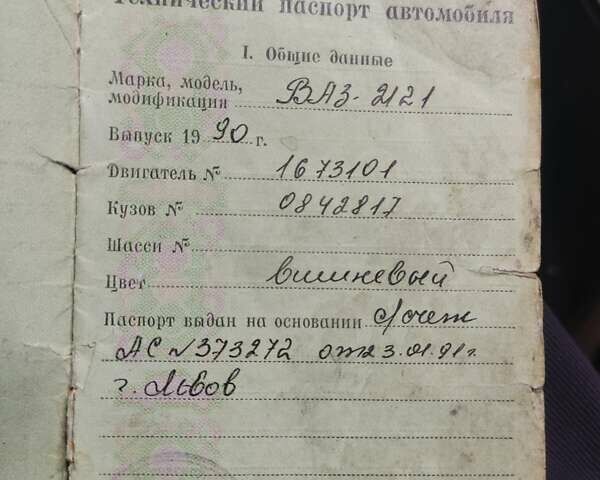 Технический паспорт автомобиля
I. Общие данные
Марка, модель,
модификация ВАЗ-2121
Выпуск 1990 г.
Двигатель № 1673101
Кузов № 0842817
Шасси №
Цвет вишневый
Паспорт выдан на основании
АС №373272 от 23.01.91г.
г. Львов